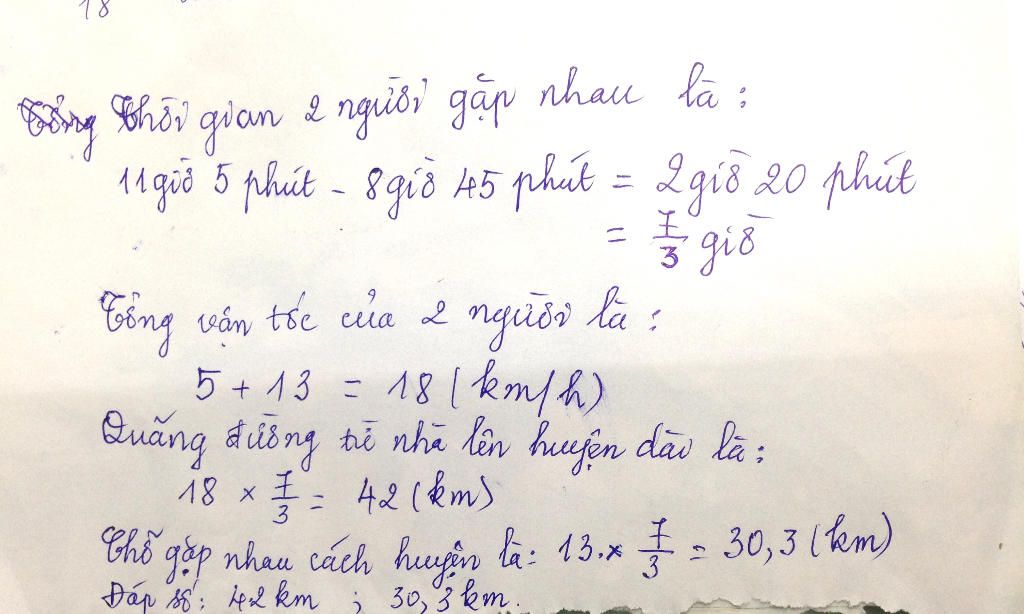 18
Thời gian 2 người gặp nhau là:
11giờ 5 phút - 8giờ 45 phút = 2giờ 20 phút
= 7/3 giờ
Tổng vận tốc của 2 người là:
5 + 13 = 18 (km/h)
Quãng đường từ nhà lên huyện dài là:
18 × 7/3 = 42 (km)
Chỗ gặp nhau cách huyện là: 13 × 7/3 = 30,3 (km)
Đáp số: 42 km ; 30,3 km.